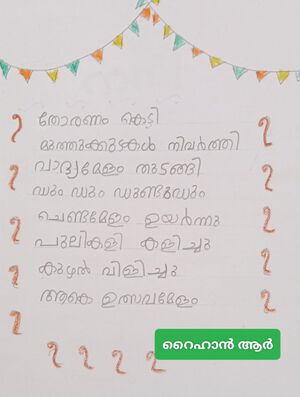 തോരണം കെട്ടി
മുത്തുക്കുടകൾ നിവർത്തി
വാദ്യമേളം തുടങ്ങി
ഡും ഡും ഡുണ്ടുഡും
ചെണ്ടമേളം ഉയർന്നു
പുലികളി കളിച്ചു
കുഴൽ വിളിച്ചു
ആകെ ഉത്സവമേളം
റൈഹാൻ ആർ